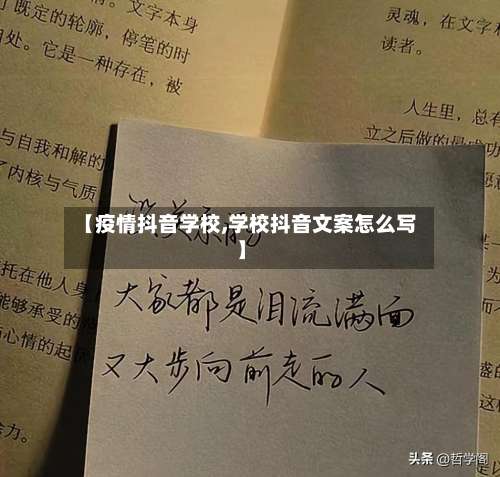 了既定的轮廓，停笔的时
处。它是一种存在，被
与自我和解的
了内核与气质
托在他人身
能够承受的
心情的起
力。
灵魂，在文字
读者。
人生里，总有
立之后做的最成功
【疫情抖音学校,学校抖音文案怎么写
】
没关系的
大家都是泪流满面
又大步向前走的人
头条 @哲学阁